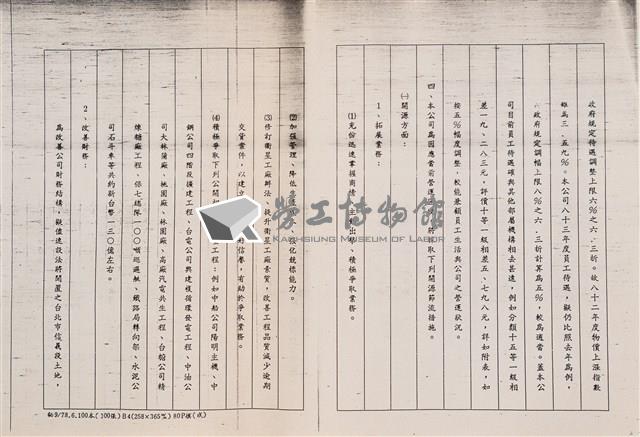 政府規定待遇調整上限六%之六.三折。故八十二年度物價上漲指數
雖為三.五九%。本公司八十三年度員工待遇,擬仍比照去年為例,
政府規定調幅上限八%之六.三折計算為五%,較為適當。蓋本公
司目前員工待遇確與其他部屬機構相去甚遠,例如分類十五等一級相
差一九、二八三元,評價十等一級相差五、七九八元,詳如附表,如
按五%幅度調整,較能兼顧員工生活與公司之營運狀況。
四、本公司為因應當前營運 將採取下列開源節流措施。
㈠開源方面:
1、拓展業務:
⑴充份迅速掌握商情,主動出擊、積極爭取業務。
⑵加強管理、降低 強化競標能力。
⑶修訂衛星工廠辦法、提升衛星工廠素質,改善工程品質減少逾期
交貨案件,以建立 信譽,有助於爭取業務。
⑷積極爭取下列公開 工程:例如中船公司陽明主機、中
鋼公司四階段擴建工程、台電公司興建複循環發電工程、中油公
司大林蒲廠、桃園廠、林園廠、高廠汽電共生工程、台糖公司精
煉糖廠工程、保七總隊一〇〇噸巡邏艇、鐵路局轉向架、水泥公
司石斗車等共約新台幣一三〇億左右。
2、改善財務:
為改善公司財務結構,擬儘速設法將閒置之台北市信義段土地,
勞工博物館
KAOHSIUNG MUSEUM OF LABOR
B4(258×365㎜)80P